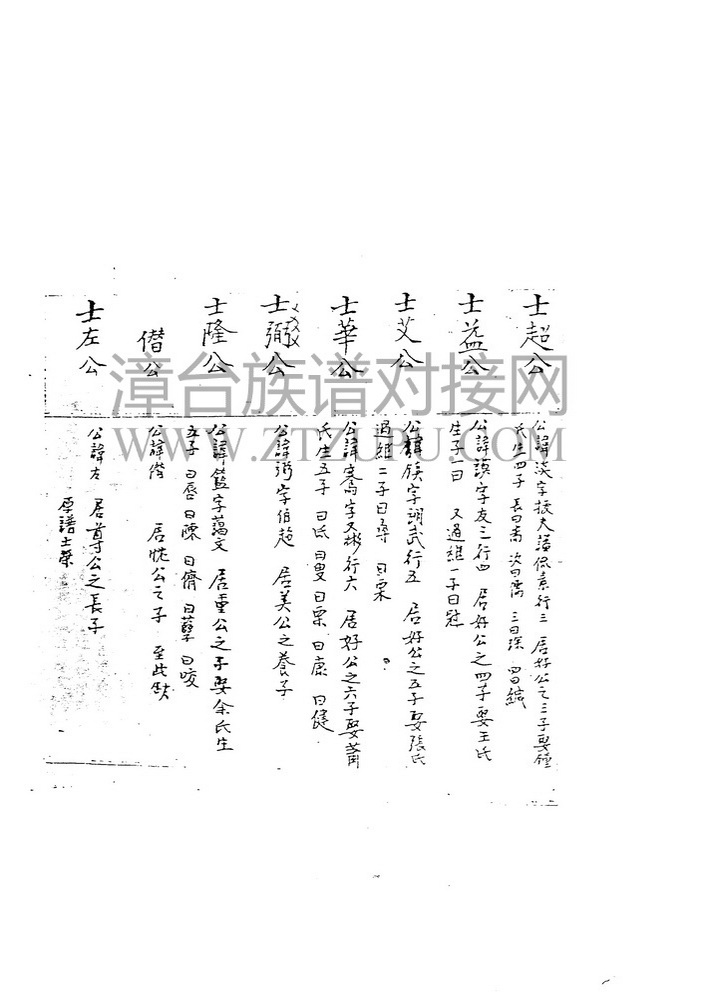 士超公
公諱淡字振夫謚保素行三 居好公之三子娶鍾
氏生四子 長曰 次曰 三曰 四曰鍼
士益公
公諱謨字友三行四 居好公之四子娶王氏
生子一曰 又過継一子曰冠
士艾公
公諱簇字謝武行五 居好公之五子娶張氏
過継二子曰尋 曰栗
士華公
公諱寯字又彬行六 居好公之六子娶
氏生五子 曰氏 曰叟 曰栗 曰康 曰健
士弼公
公諱弼字伯超 居美公之養子
士隆公
公諱籃字藹文 居重公之子娶余氏生
五子 曰唇 曰陳 曰儕 曰 曰
僭公
公諱 居 公之子 至此缺
士左公
公諱左 居尊公之長子
原譜士榮
漳台族谱对接网
WWW.ZTZUPU.COM